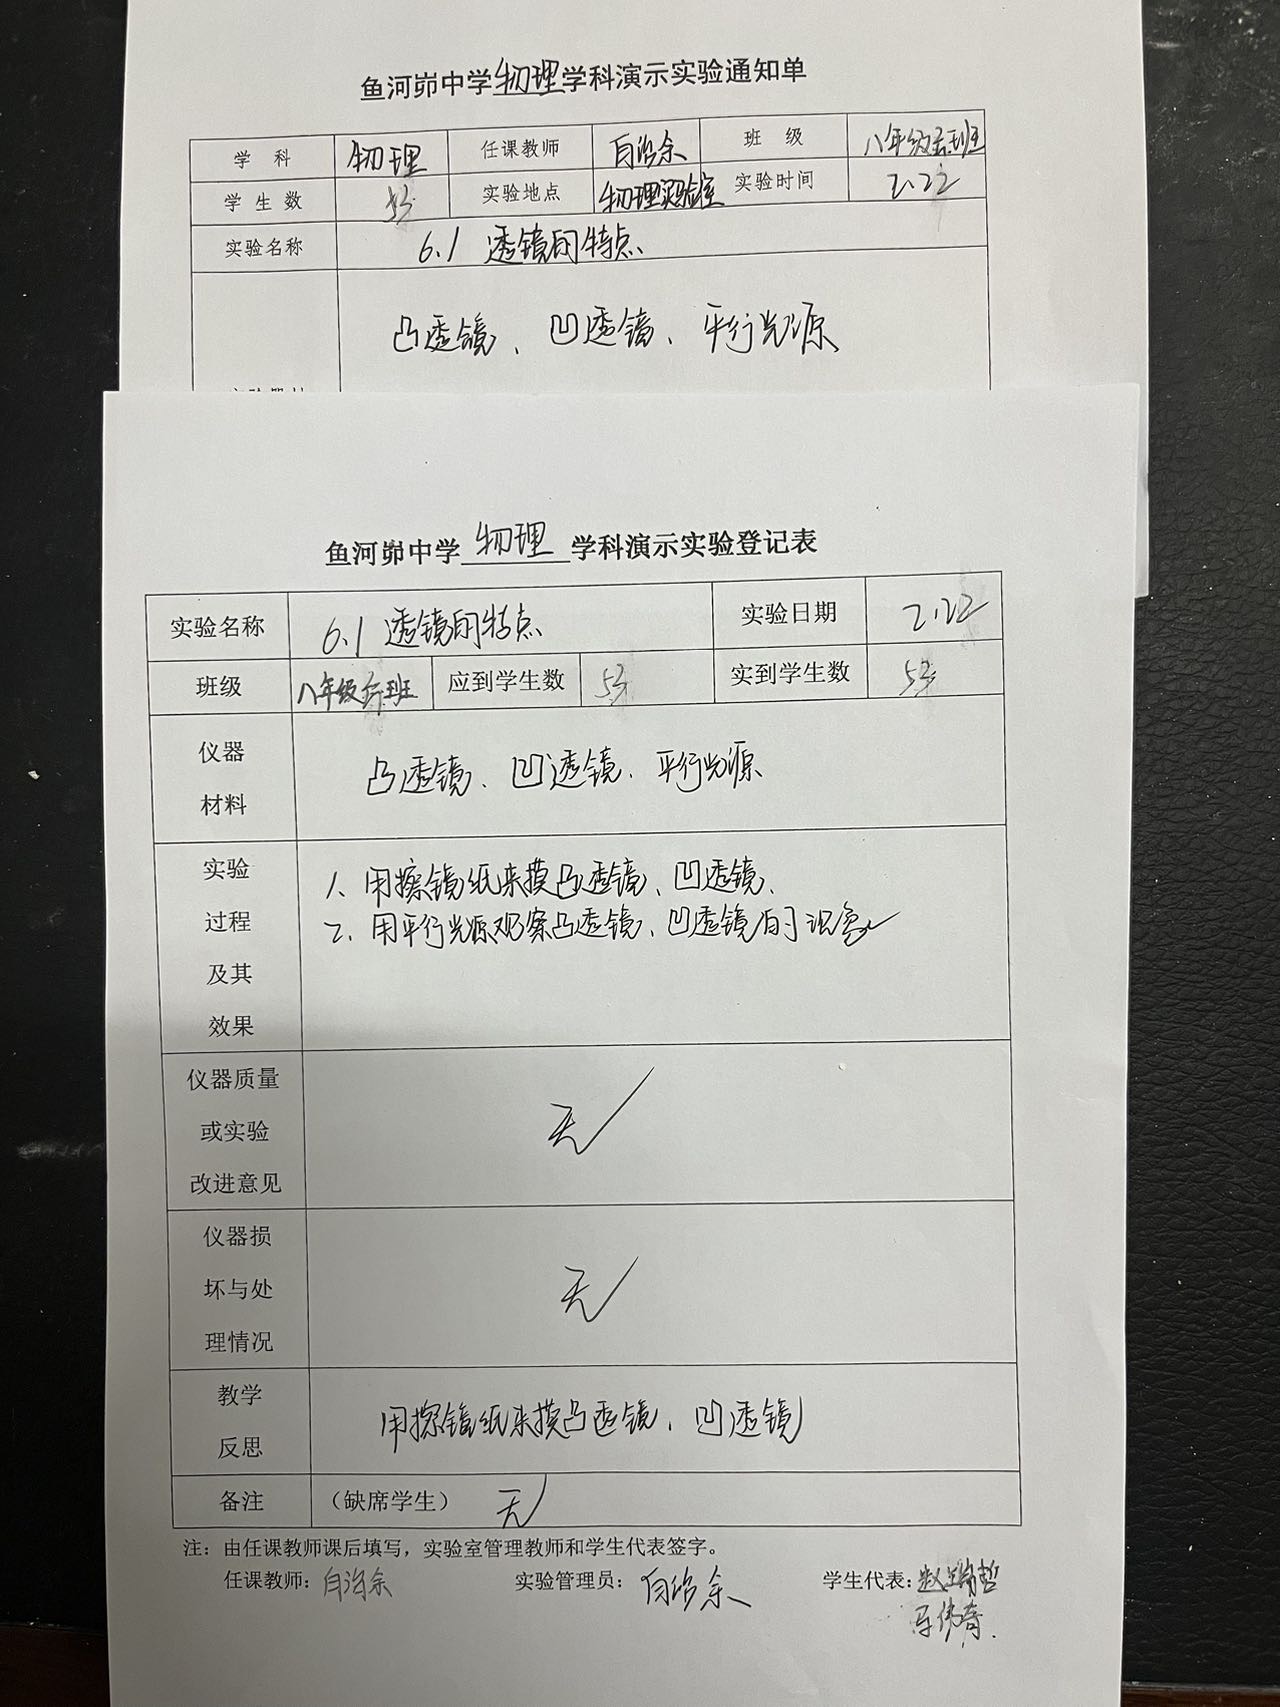 鱼河峁中学物理学科演示实验通知单
学 科 物理 任课教师 白治余 班 级 八年级 班
学生数 53 实验地点 物理实验室 实验时间 2.22
实验名称 6.1 透镜的特点
凸透镜、凹透镜、平行光源
鱼河峁中学 物理 学科演示实验登记表
实验名称 6.1 透镜的特点 实验日期 2.22
班级 八年级 班 应到学生数 53 实到学生数 53
仪器
材料
凸透镜、凹透镜、平行光源
实验
过程
及其
效果
1、用擦镜纸来摸凸透镜、凹透镜、
2、用平行光源观察凸透镜、凹透镜的现象
仪器质量
或实验
改进意见
无
仪器损
坏与处
理情况
无
教学
反思
用擦镜纸来摸凸透镜、凹透镜
备注 （缺席学生） 无
注：由任课教师课后填写，实验室管理教师和学生代表签字。
任课教师：白治余 实验管理员：白治余 学生代表：赵 哲
马伟奇